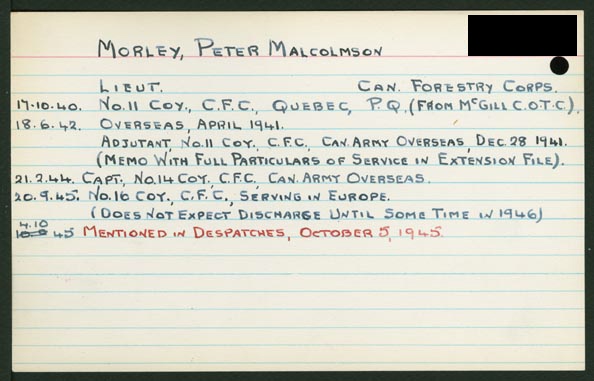 MORLEY, PETER MALCOLMSON
LIEUT. CAN. FORESTRY CORPS.
17.10.40. NO.11 COY., C.F.C., QUEBEC, P.Q. (FROM McGILL C.O.T.C.).
18.6.42. OVERSEAS, APRIL 1941.
ADJUTANT, NO.11 COY., C.F.C., CAN. ARMY OVERSEAS, DEC. 28 1941.
(MEMO WITH FULL PARTICULARS OF SERVICE IN EXTENSION FILE).
21.2.44. CAPT., NO.14 COY., C.F.C., CAN. ARMY OVERSEAS.
20.9.45. NO.16 COY., C.F.C., SERVING IN EUROPE.
(DOES NOT EXPECT DISCHARGE UNTIL SOME TIME IN 1946)
4.10
45 MENTIONED IN DESPATCHES, OCTOBER 5, 1945.